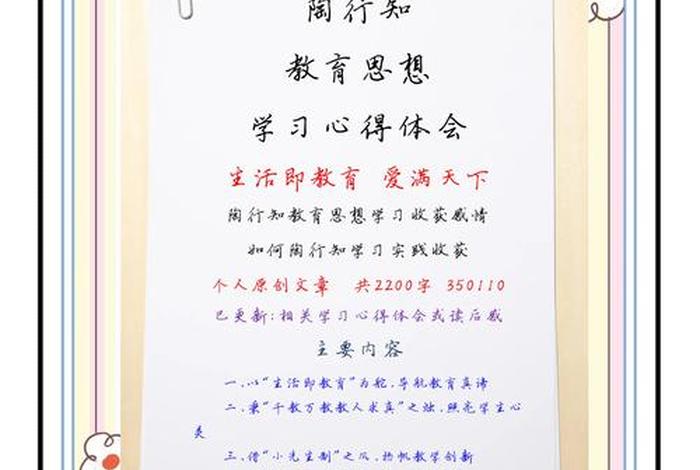 陶行知
教育思想
学习心得体会
生活即教育 爱满天下
陶行知教育思想学习收获感情
如何陶行知学习实践收获
个人原创文章 共2200字 350110
已更新:相关学习心得体会或读后感
主要内容
一.以“生活即教育”为舵,导航教育真谛
二.秉“千教万教教人求真”之烛,照亮学生心
灵
三.借“小先生制”之风,扬帆教学创新